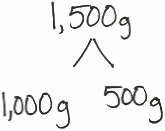 1,500g
1,000g 500g